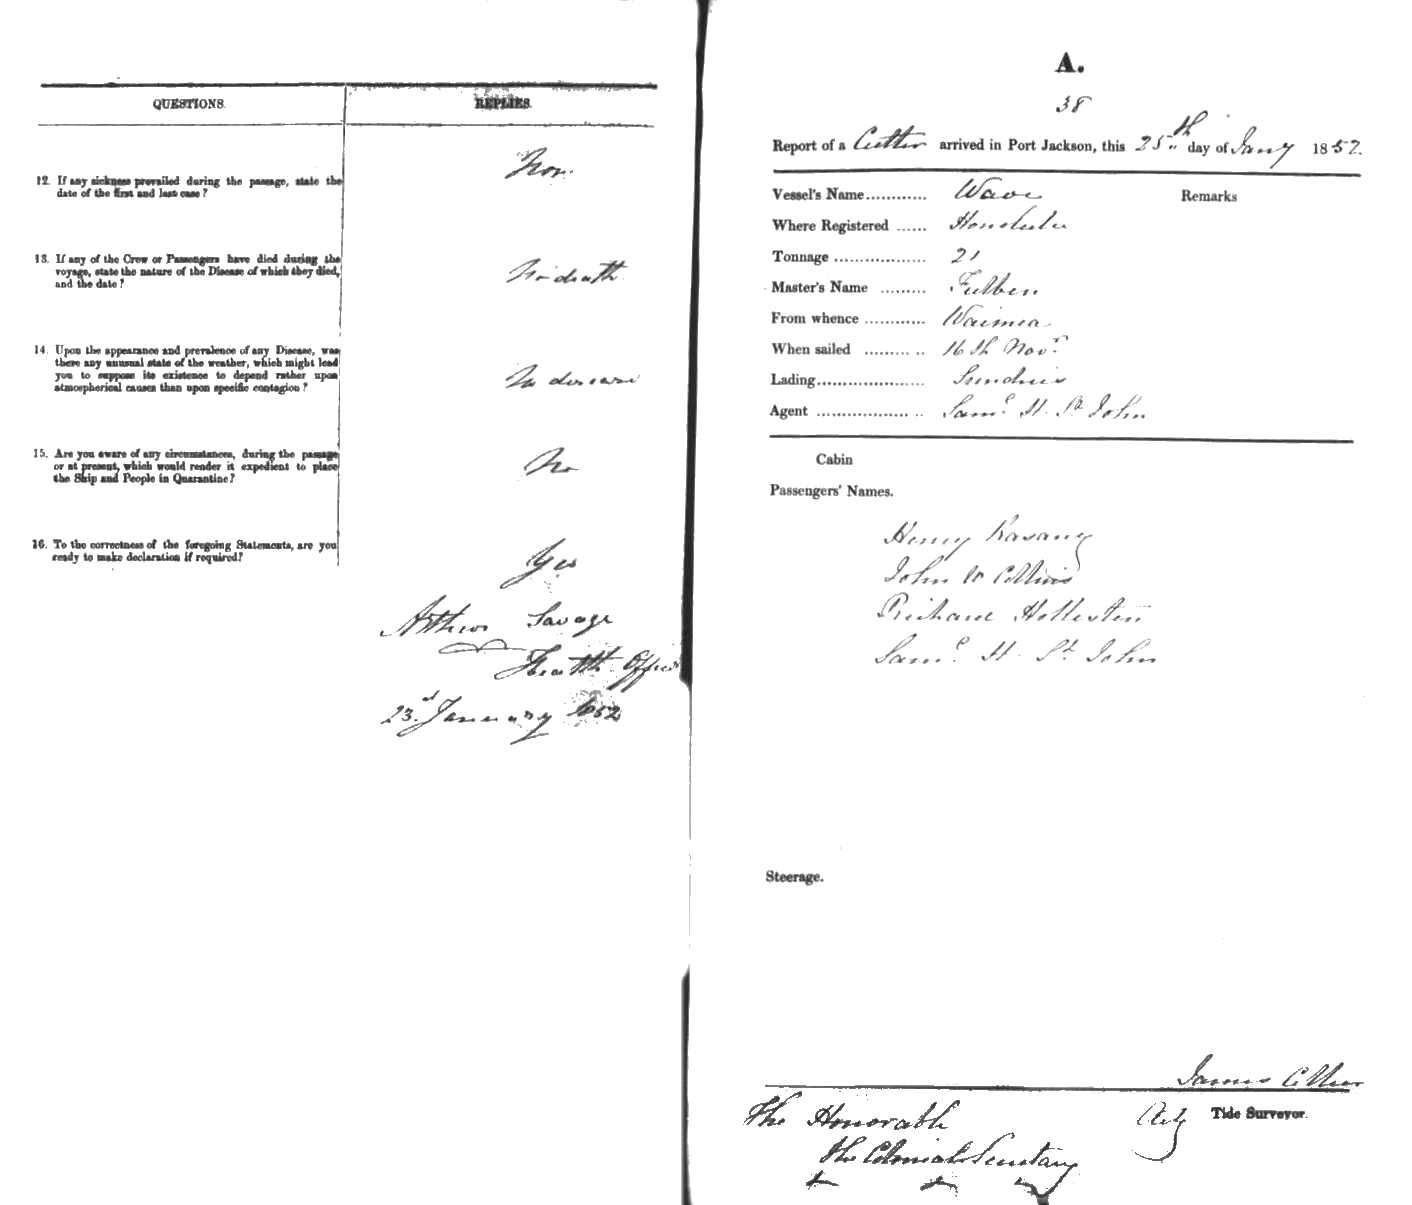 QUESTIONS.
REPLIES.
12. If any sickness prevailed during the passage, state the
date of the first and last case?
Non
13. If any of the Crew or Passengers have died during the
voyage, state the nature of the Disease of which they died,
and the date?
No death
14. Upon the appearance and prevalence of any Disease, was
there any unusual state of the weather, which might lead
you to suppose its existence to depend rather upon
atmospherical causes than upon specific contagion?
No disease
15. Are you aware of any circumstances, during the passage
or at present, which would render it expedient to place
the Ship and People in Quarantine?
No
16. To the correctness of the foregoing Statements, are you
ready to make declaration if required?
Yes
Arthur Savage
Health Officer
23d January 1852
A.
38
Report of a Cutter arrived in Port Jackson, this 25th day of Jany 1852.
Vessel's Name............ Wave
Remarks
Where Registered ...... Honolulu
Tonnage .................. 21
Master's Name .........
From whence ............ Waimea
When sailed ......... .. 16th Novr
Lading..................... Sundries
Agent .................. .. Saml H. St John
Cabin
Passengers' Names.
Henry
John W Collins
Richard
Saml H. St John
Steerage.
James
Actg Tide Surveyor.
The Honorable
The Colonial Secretary